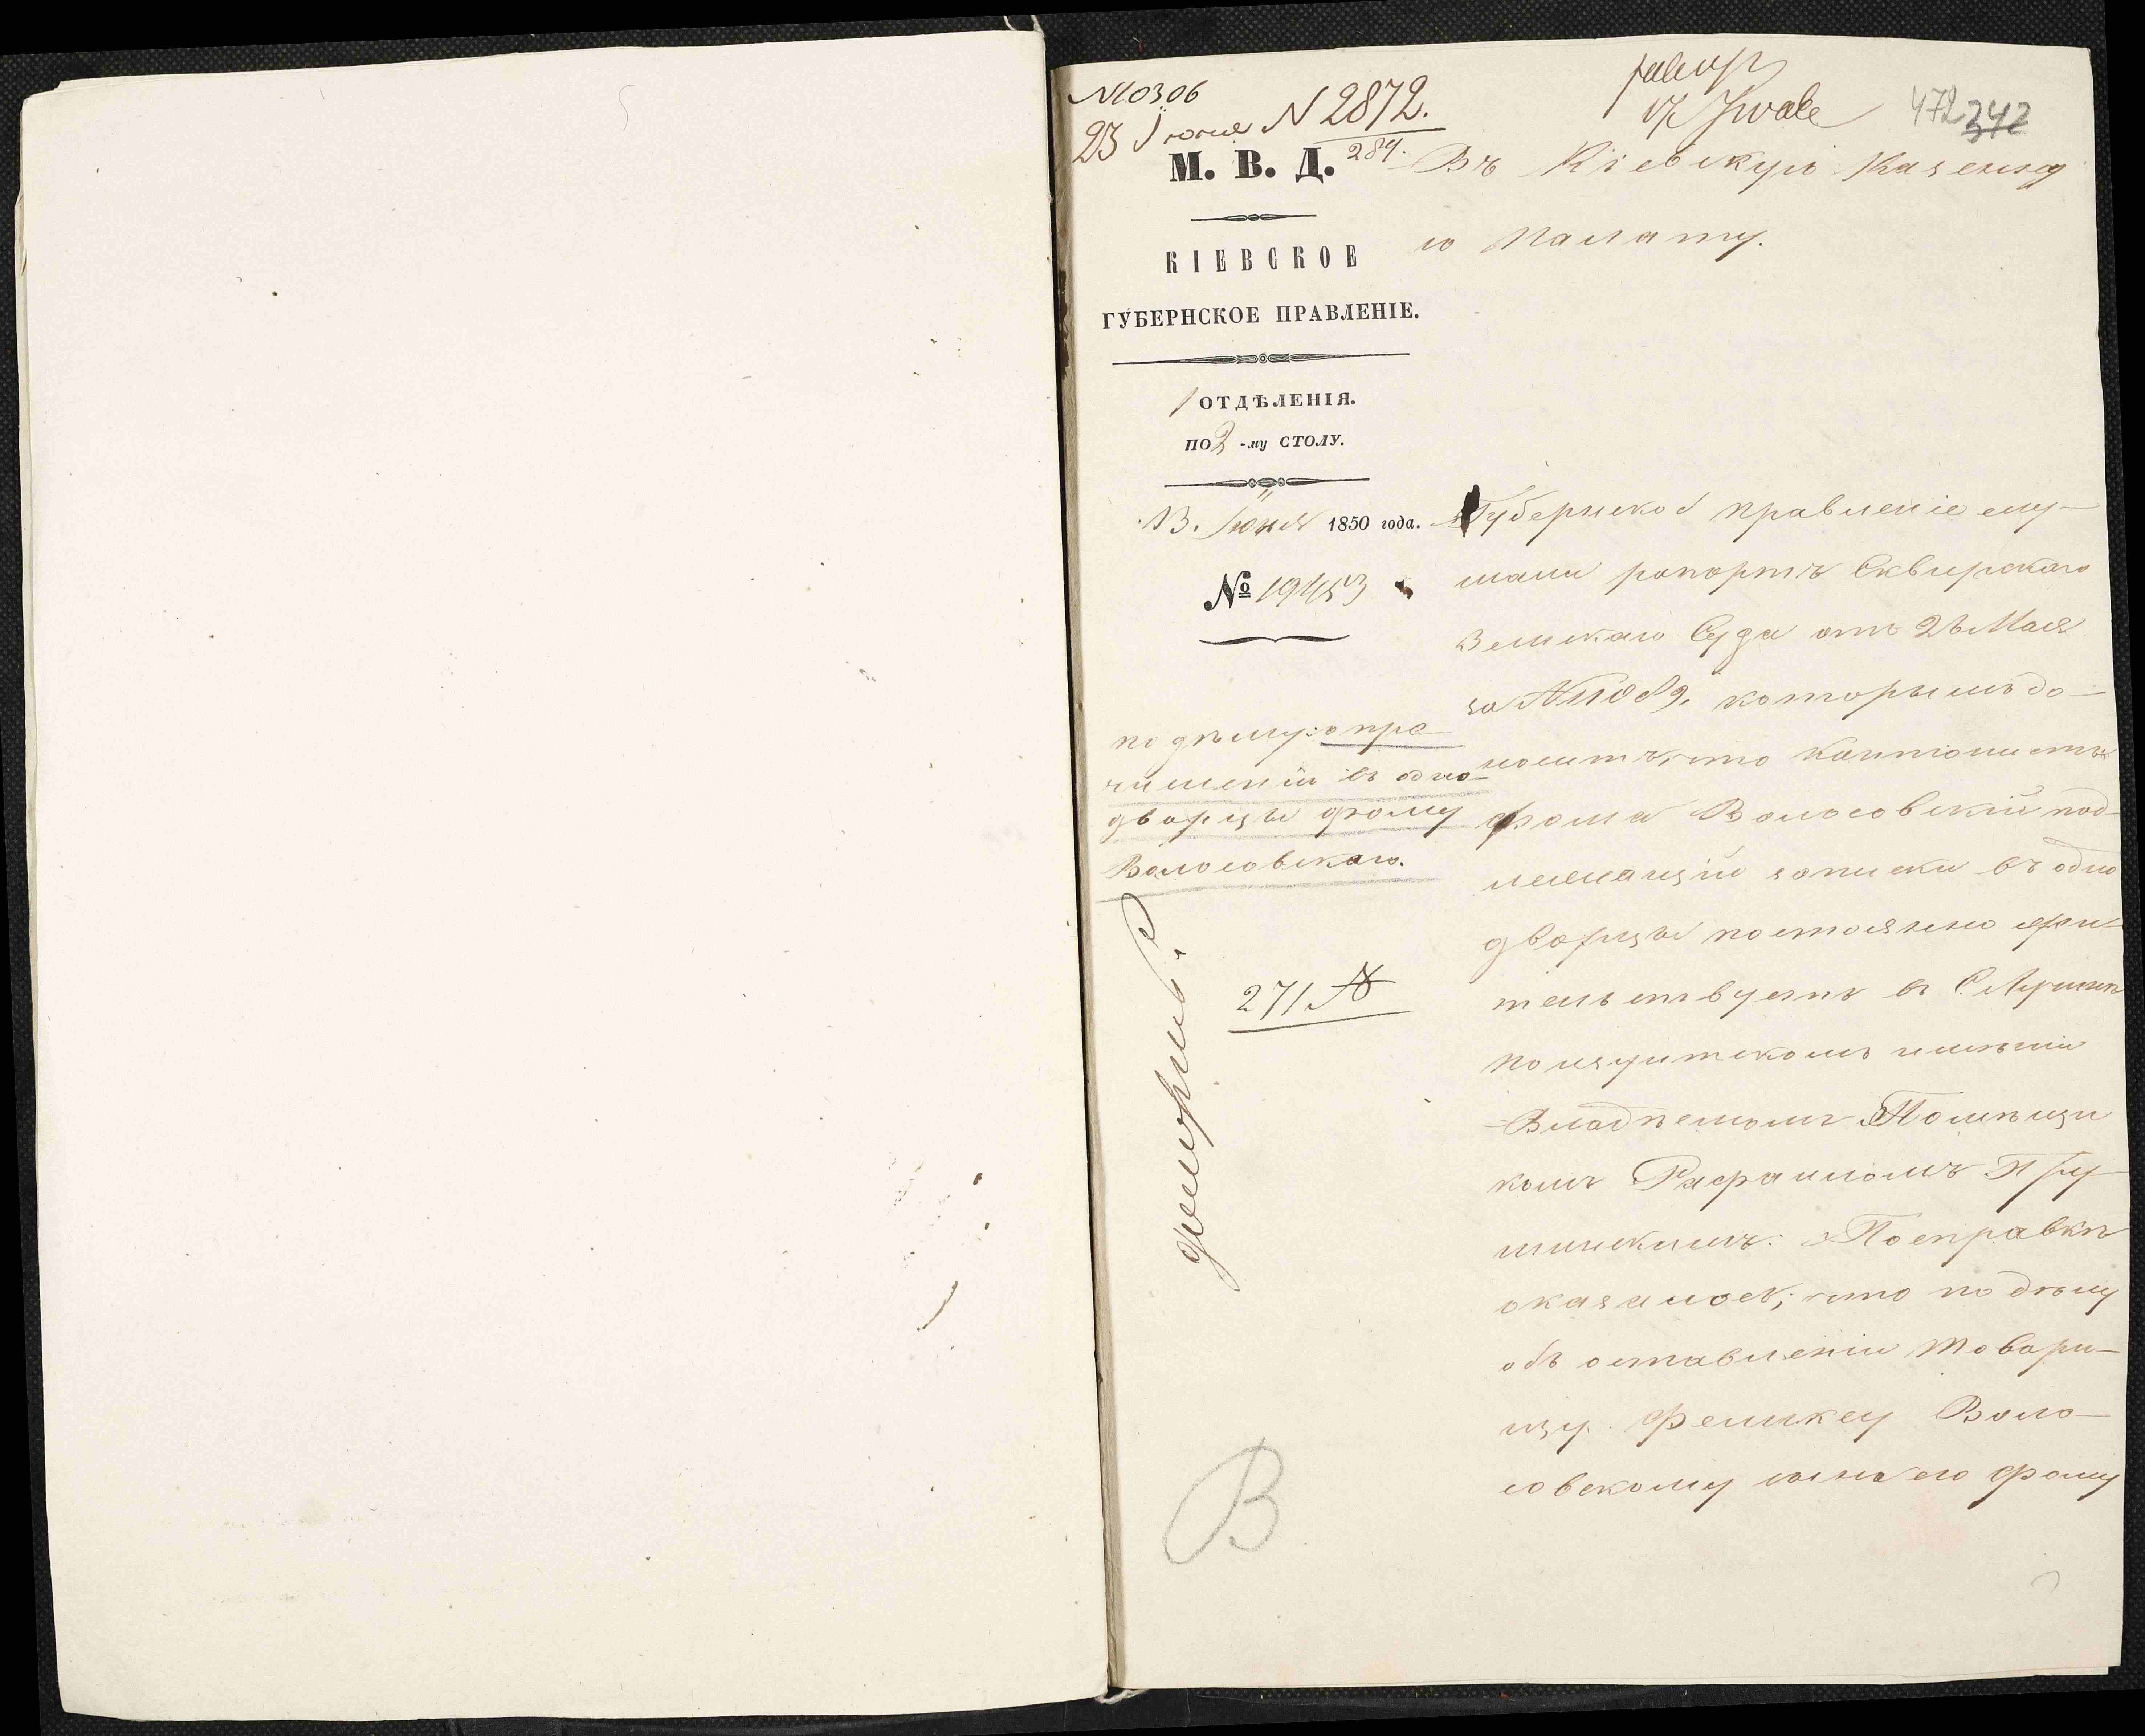 N10306
23 Іюня N 2872.
284.
472 342
М. В. Д.
Въ Кіевскую Казенну
ю Палату.
КІЕВСКОЕ
ГУБЕРНСКОЕ ПРАВЛЕНІЕ.
1 ОТДѢЛЕНІЯ.
ПО 2 -му СТОЛУ.
13. Іюня 1850 года.
№ 19453
по дѣлу: о при
численіи въ одно
дворцы Фому
Волосовскаго.
271 N
В
Губернское правленіе слу-
шали рапортъ Сквирскаго
Земскаго Суда отъ 26 Мая
за N 11089, которымъ до-
носитъ, что Кантонистъ
Фома Волосовскій под-
лежащій записки въ одно
дворцы постоянно жи-
тельствуетъ въ С.
имѣніи
Владѣемомъ Помѣщи
комъ Рафаиломъ Пру-
шинскимъ: По справкѣ
оказалось; что по дѣлу
объ оставленіи товари-
щу Феликсу Воло-
совскому сына его Фому